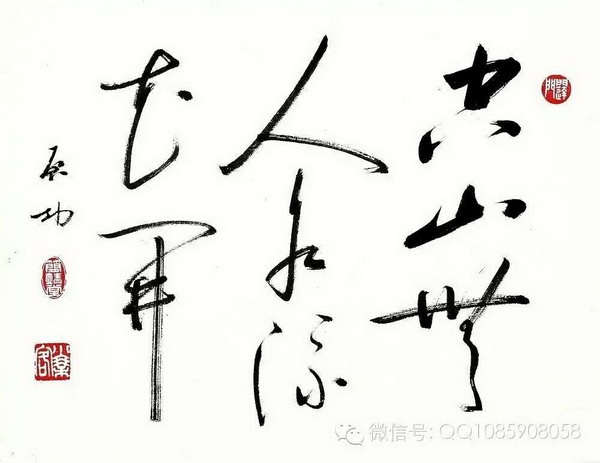 空山無
人水流
花開
启功
微信号: QQ1085908058